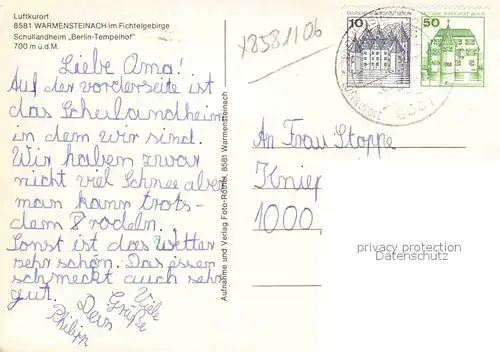 Luftkurort
8581 WARMENSTEINACH im Fichtelgebirge
Schullandheim „Berlin-Tempelhof"
700 m ü.d.M.
x8581106
10
DEUTSCHE BUNDESPOST BERLIN
50
DEUTSCHE BUNDESPOST BERLIN
Luftkurort
8581
Liebe Ama!
Auf der vorderseite ist
das Schulandheim
in dem wir sind.
Wir haben zwar
nicht viel Schnee aber
man kann trots-
dem Rodeln.
Sonst ist das Wetter
sehr schön. Das essen
schmeckt auch sehr
gut.
Viele
Grüße
Dein
Philipp
Aufnahme und Verlag Foto-Römer, 8581 Warmensteinach
An Frau Stoppe
Kniep
1000
privacy protection
Datenschutz